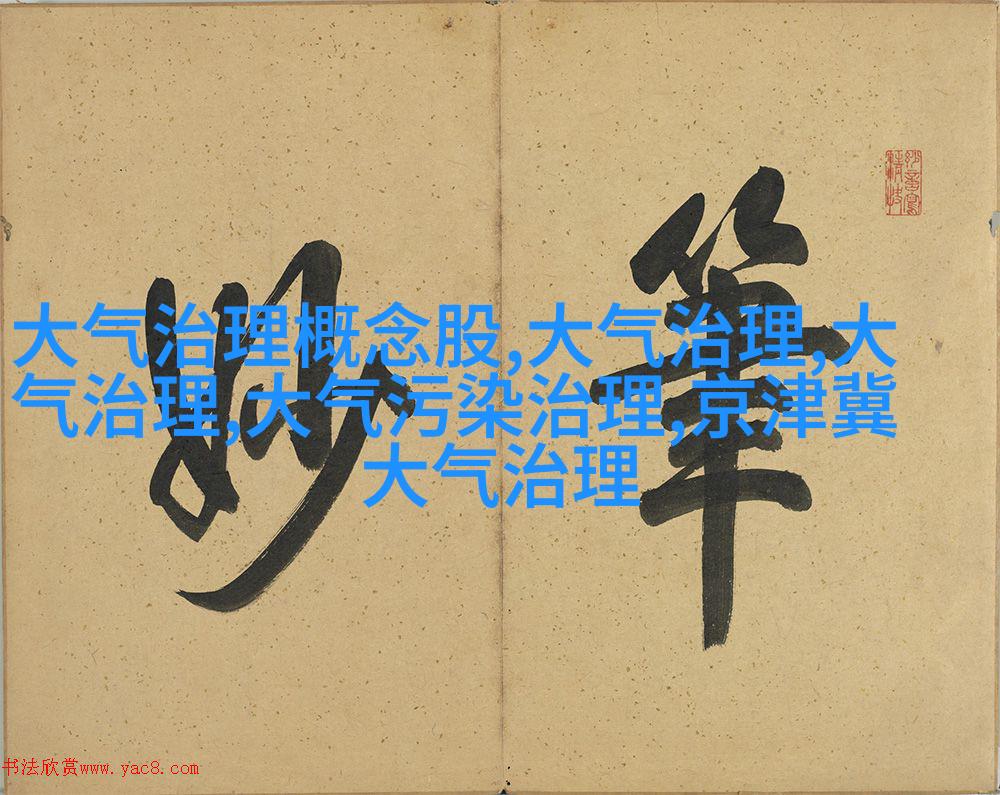 筆
妙
大气治理概念股,大气治理,大
气治理,大气污染治理,京津冀
大气治理
书法欣赏www.yac8.com